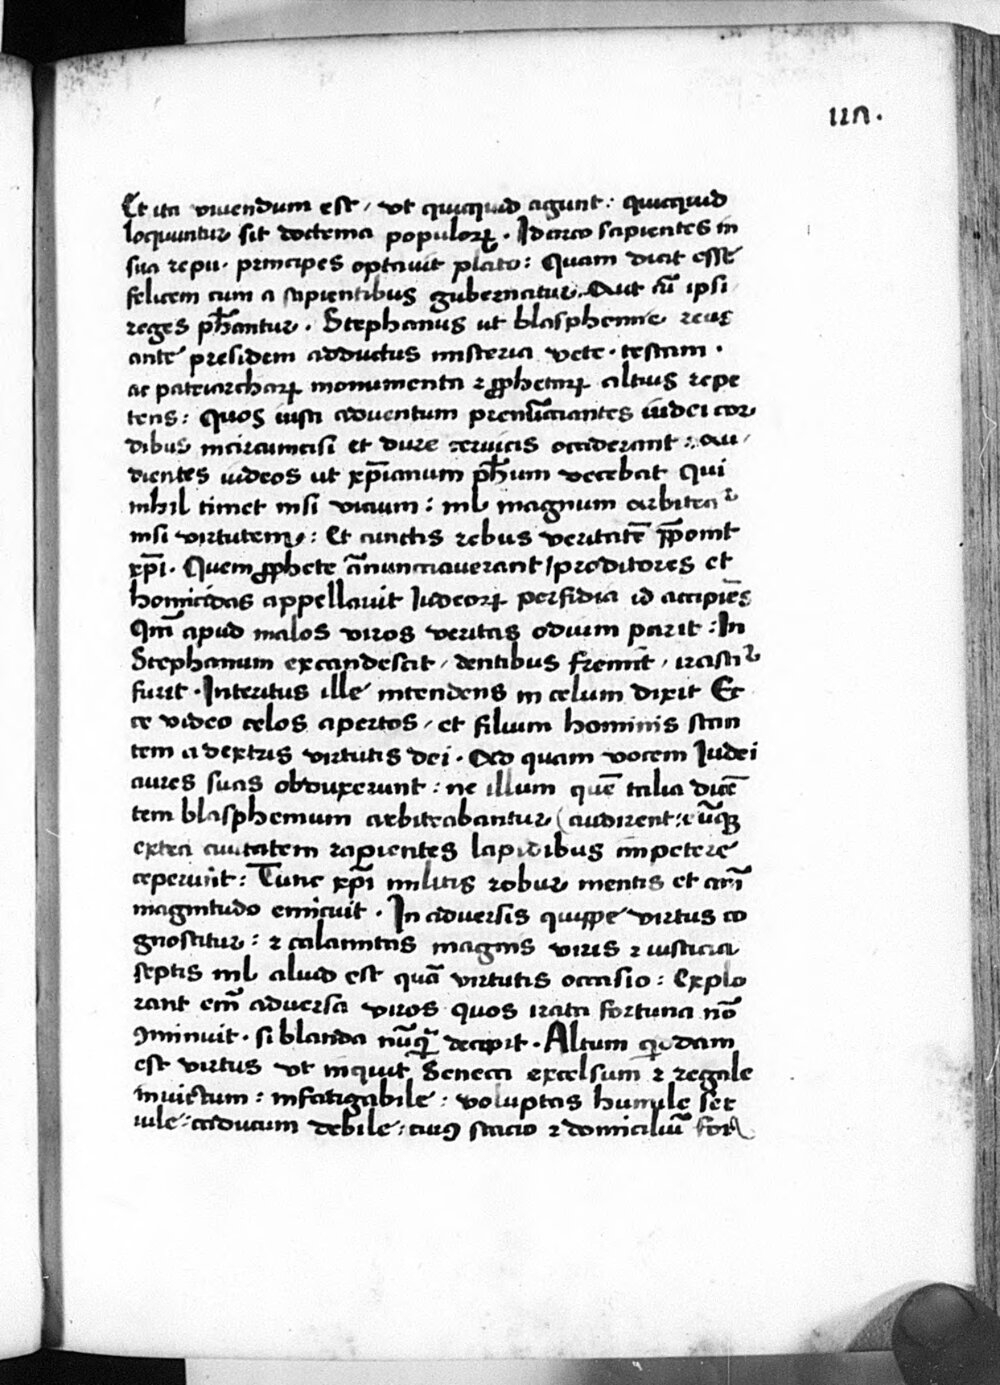 117.
Et ita viuendum est / vt quicquid agunt : quicquid
loquuntur sit doctema populoꝝ . Idcirco sapientes in
sua repu. principes optauit plato : Quam dicit esse
felicem cum a sapientibus gubernatur . Aut cū ipsi
reges ph̄antur . Stephanus ut blasphemie reus
ante presidem adductus misteria vete . testam .
ac patriarcharꝝ monumenta ⁊ ꝓphetarꝝ altius repe
tens : Quos iusti aduentum prenūciantes iudei cor
dibus incircumcisi et dure ceruicis occiderant : au /
dientes iudeos ut xp̄ianum ph̄um decebat Qui
nihil timet nisi vicium : nil magnum arbitratur
nisi virtutem : Et cunctis rebus veritatē p̄ponit
xp̄i . Quem ꝓphete ānunciauerant / proditores et
homicidas appellauit Iudeorꝝ perfidia id accipiēs
Qm̄ apud malos viros veritas odium parit : In
Stephanum excandescit / dentibus fremit / irascitur
furit . Interitus ille intendens in celum dixit Ec
ce video celos apertos / et filium hominis stan
tem a dextris virtutis dei . Ad quam vocem Iudei
aures suas obduxerunt : ne illum quē talia dicē
tem blasphemum arbitrabantur ( audirent : eūqꝫ
extra ciuitatem rapientes lapidibus impetere
ceperunt : Tunc xp̄i militis robur mentis et animi
magnitudo emicuit . In aduersis quippe virtus co
gnoscitur : ⁊ calamitas magnis viris ⁊ iusticia
septis nil aliud est quā virtutis occasio : Explo
rant em̄ aduersa viros quos irata fortuna nō
ꝯminuit . si blanda nūqꝫ decipit . Altum quodam
est virtus vt inquit Seneca excelsum ⁊ regale
inuictum : infatigabile : voluptas humile ser
uile : caducum debile : cuiꝰ stacio ⁊ domiciliū for